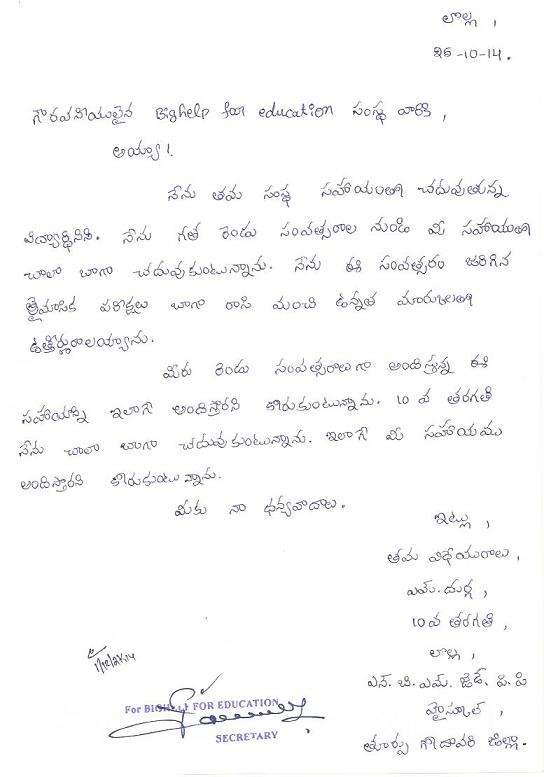 లొల్ల ,
25-10-14.
గౌరవనీయులైన Bighelp for education సంస్థ వారికి ,
అయ్యా !
నేను తమ సంస్థ సహాయంతో చదువుతున్న
విద్యార్థినిని. నేను గత రెండు సంవత్సరాల నుండి మీ సహాయంతో
చాలా బాగా చదువుకుంటున్నాను. నేను ఈ సంవత్సరం జరిగిన
త్రైమాసిక పరీక్షలు బాగా రాసి మంచి ఉన్నత మార్కులతో
ఉత్తీర్ణురాలయ్యాను.
మీరు రెండు సంవత్సరాలుగా అందిస్తున్న ఈ
సహాయాన్ని ఇలాగే అందిస్తారని కోరుకుంటున్నాను. 10 వ తరగతి
నేను చాలా బాగా చదువుకుంటున్నాను. ఇలాగే మీ సహాయము
అందిస్తారని కోరుకుంటున్నాను.
మీకు నా ధన్యవాదాలు.
ఇట్లు ,
తమ విధేయురాలు ,
ఎమ్. దుర్గ ,
10 వ తరగతి ,
లొల్ల ,
ఎస్. బి. ఎమ్. జెడ్. పి. పి
హైస్కూల్ ,
తూర్పు గోదావరి జిల్లా.
1/12/2K14
For BIGHELP FOR EDUCATION
SECRETARY